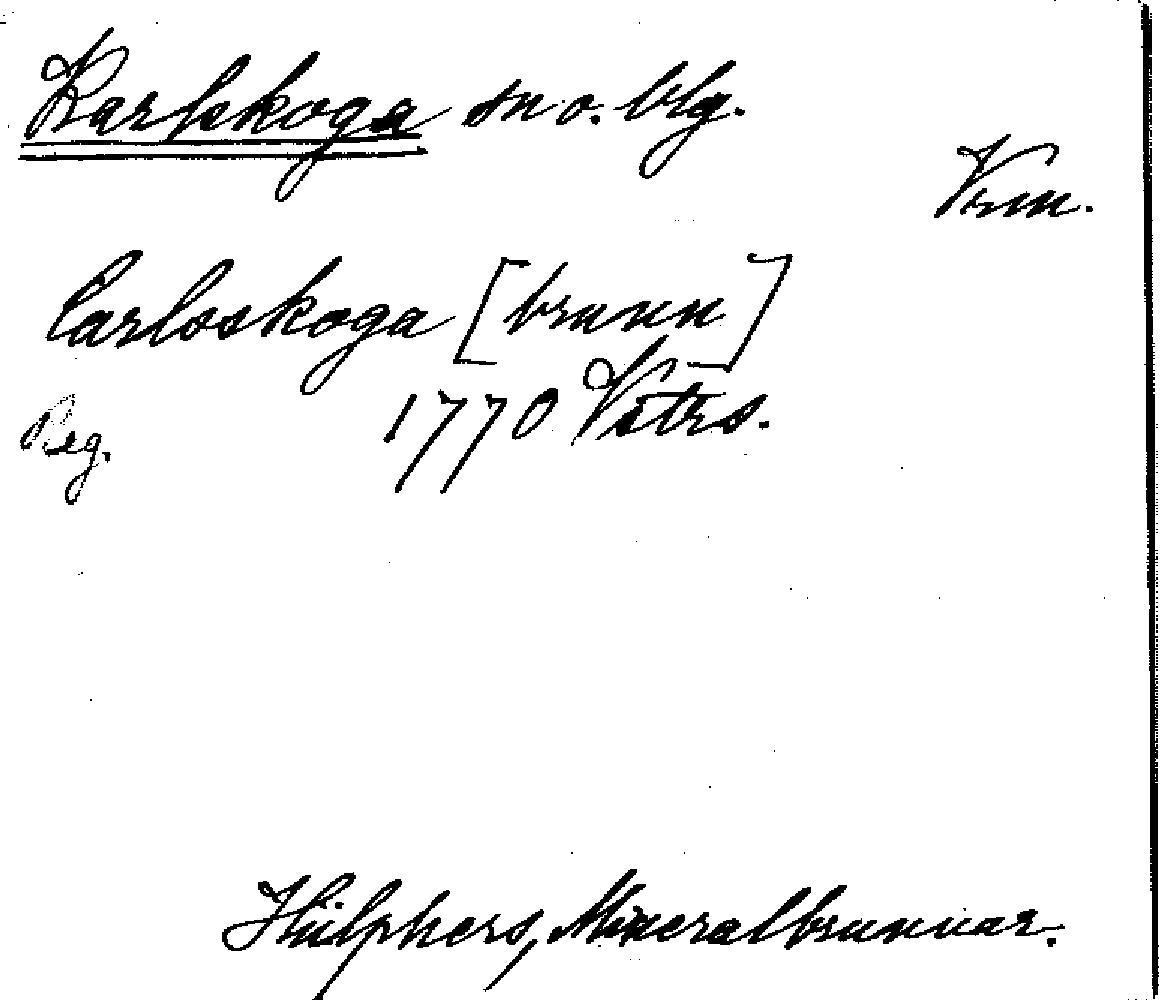 Karlskoga sn o. blg.
Vrm.
Carlsskoga [brunn]
1770 Vstrs.
Reg.
Hülphers, Mineralbrunnar.